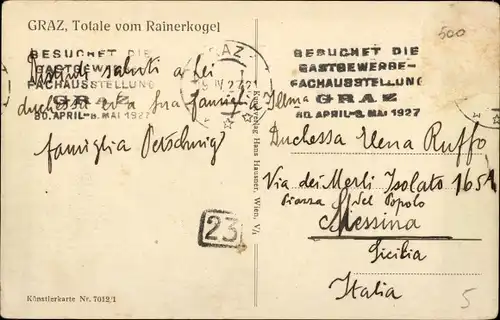 GRAZ, Totale vom Rainerkogel
500
BESUCHET DIE
GASTGEWERBE-
FACHAUSSTELLUNG
GRAZ
30. APRIL-8. MAI 1927
GRAZ
BESUCHET DIE
GASTGEWERBE-
FACHAUSSTELLUNG
GRAZ
30. APRIL-8. MAI 1927
saluti a lei
duchessa ed a Sua famiglia
famiglia
Illma
Duchessa Elena Ruffo
Via dei Merli Isolato 165A
Piazza del Popolo
Messina
Sicilia
Italia
23
Kunstverlag Hans Hausner, Wien, V/1
Künstlerkarte Nr. 7012/1
5